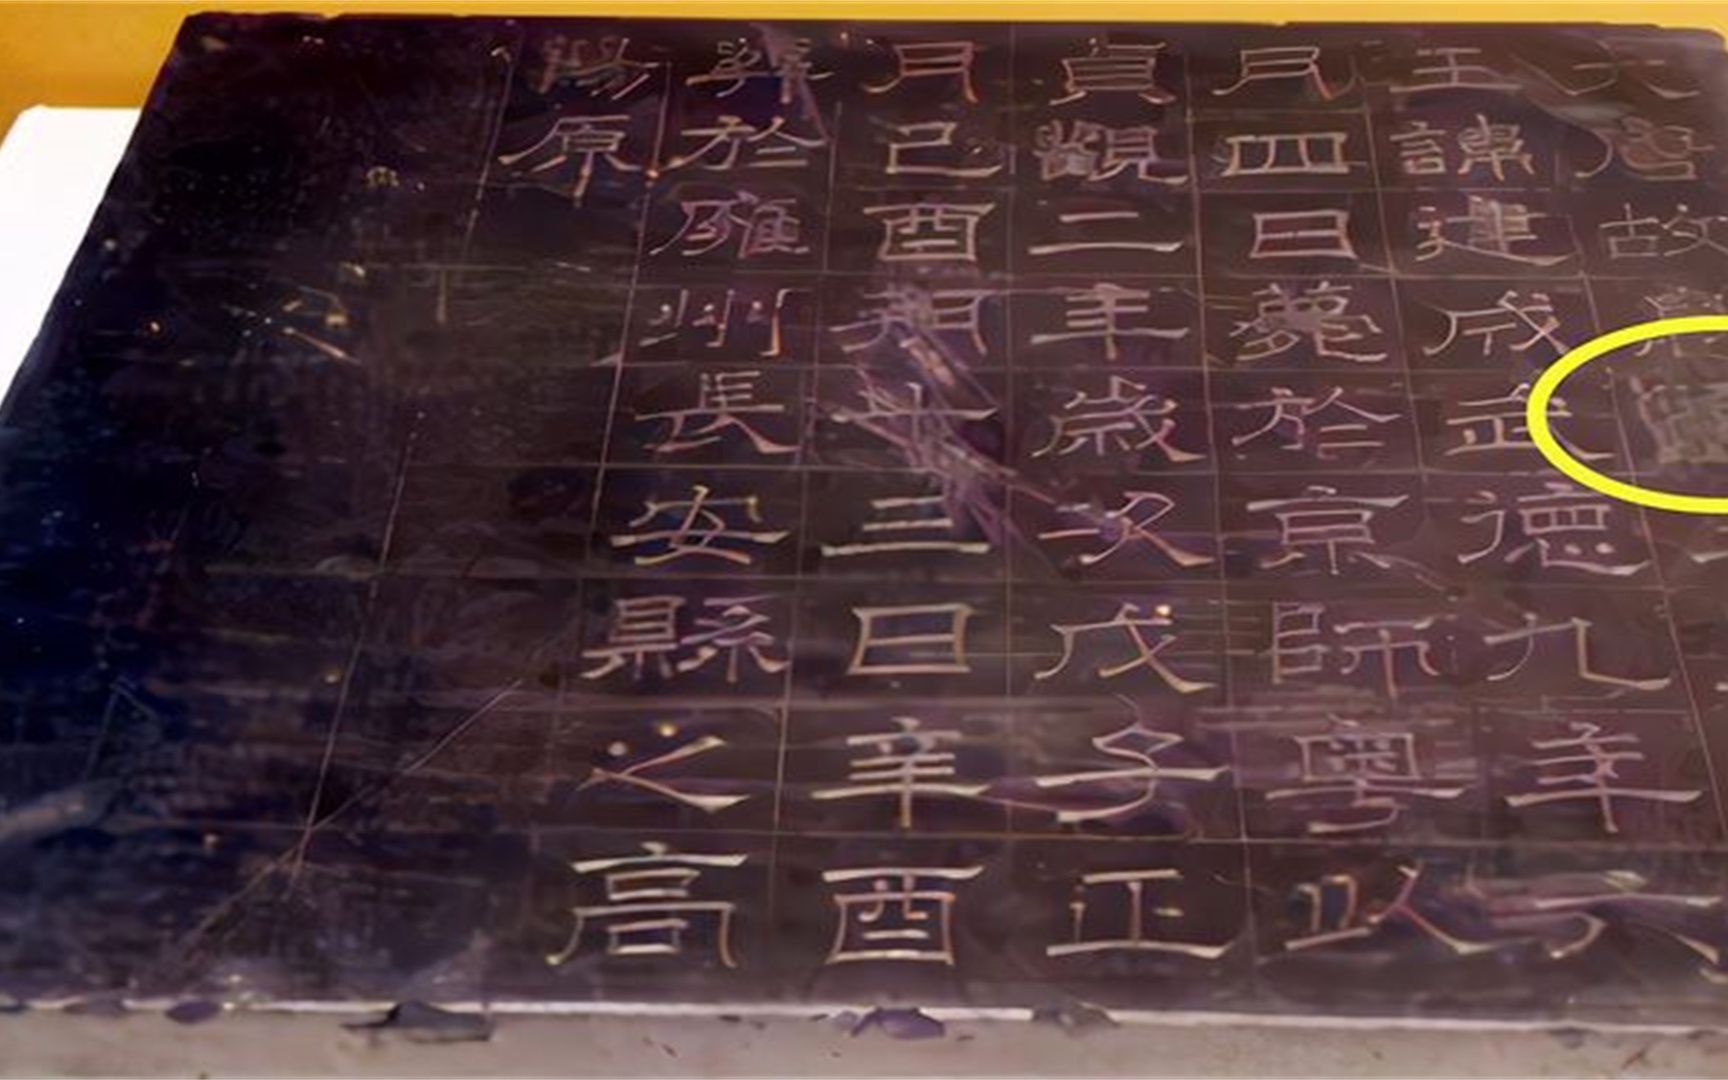 大唐故
王諱建成武德九年六
月四日薨於京師粵以
貞觀二年歲次戊子正
月己酉朔十三日辛酉
葬於雍州長安縣之高
陽原